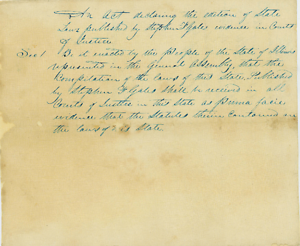 An Act declaring the edition of State
Laws published by Stephen F Gales evidence in Courts
of Justice
Sec 1 Be it enacted by the People of the State of Illinois
represented in the General Assembly, that the
Compilation of the Laws of this State Published
by Stephen F Gales Shall be received in all
Courts of Justice in this State as Prima facie
evidence that the Statutes therein contained are
the laws of State